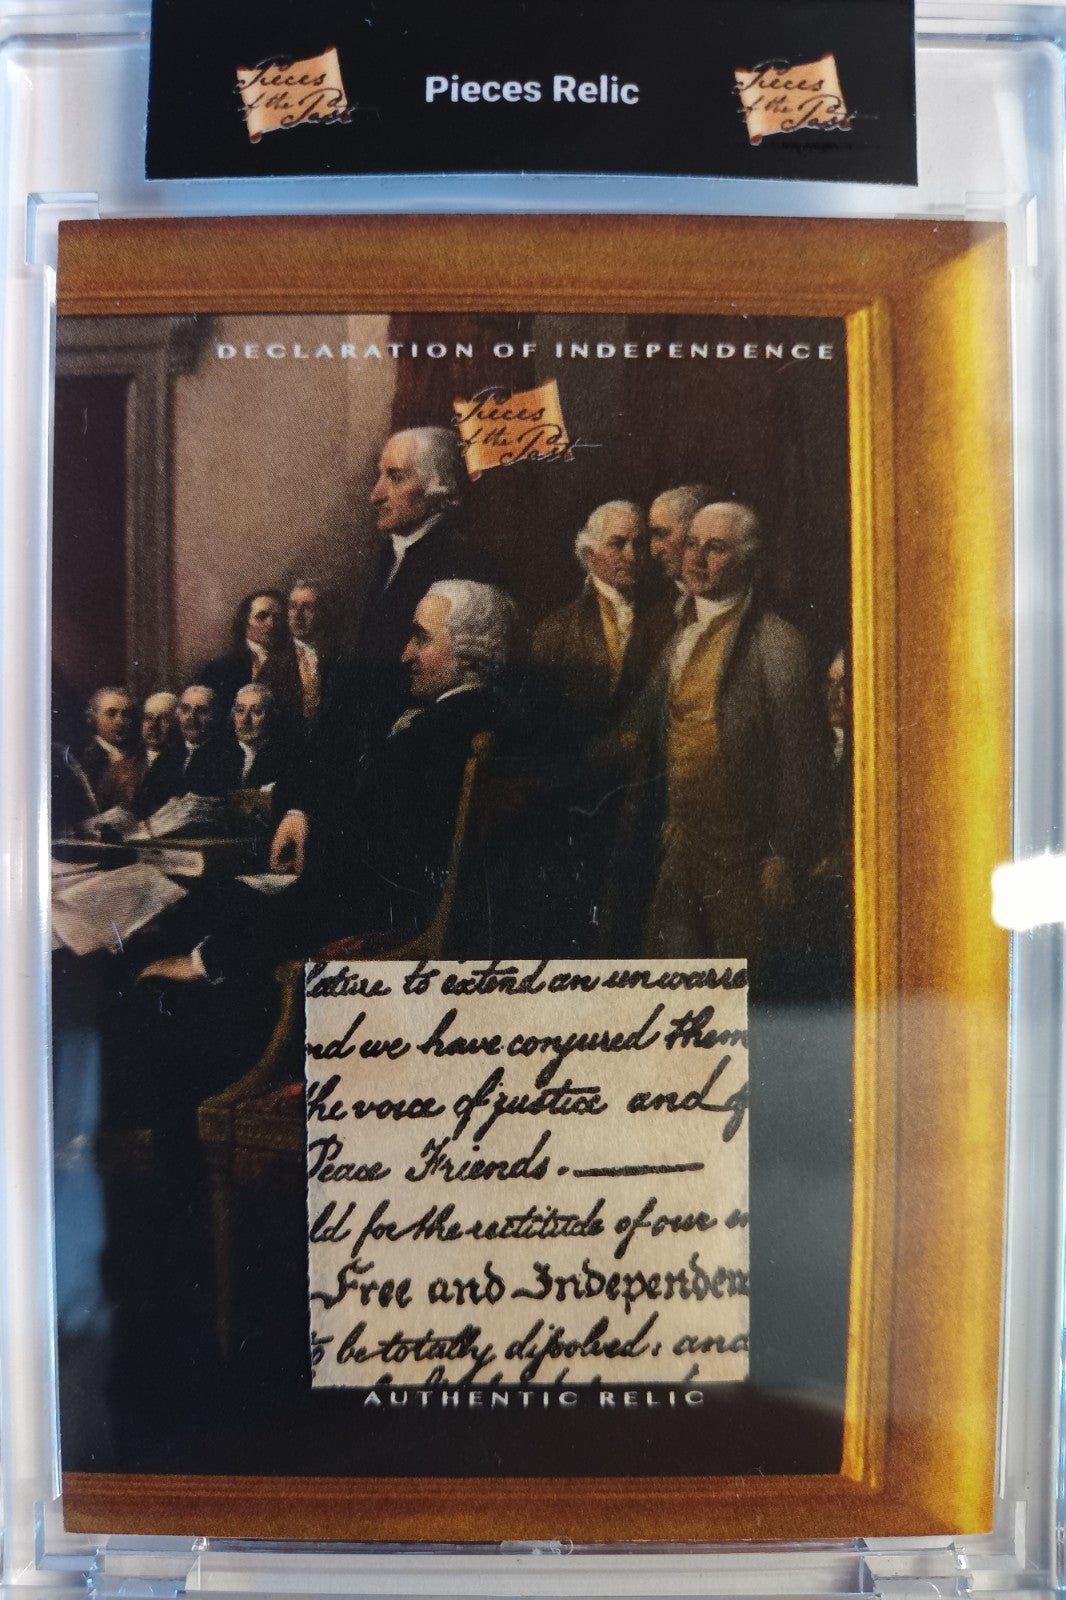 Pieces
of the Past
Pieces Relic
Pieces
of the Past
DECLARATION OF INDEPENDENCE
Pieces
of the Past
lature to extend an unwarra
nd we have conjured them
the voice of justice and of
Peace Friends. —
ld for the rectitude of our in
Free and Independen
to be totally dissolved; and
AUTHENTIC RELIC